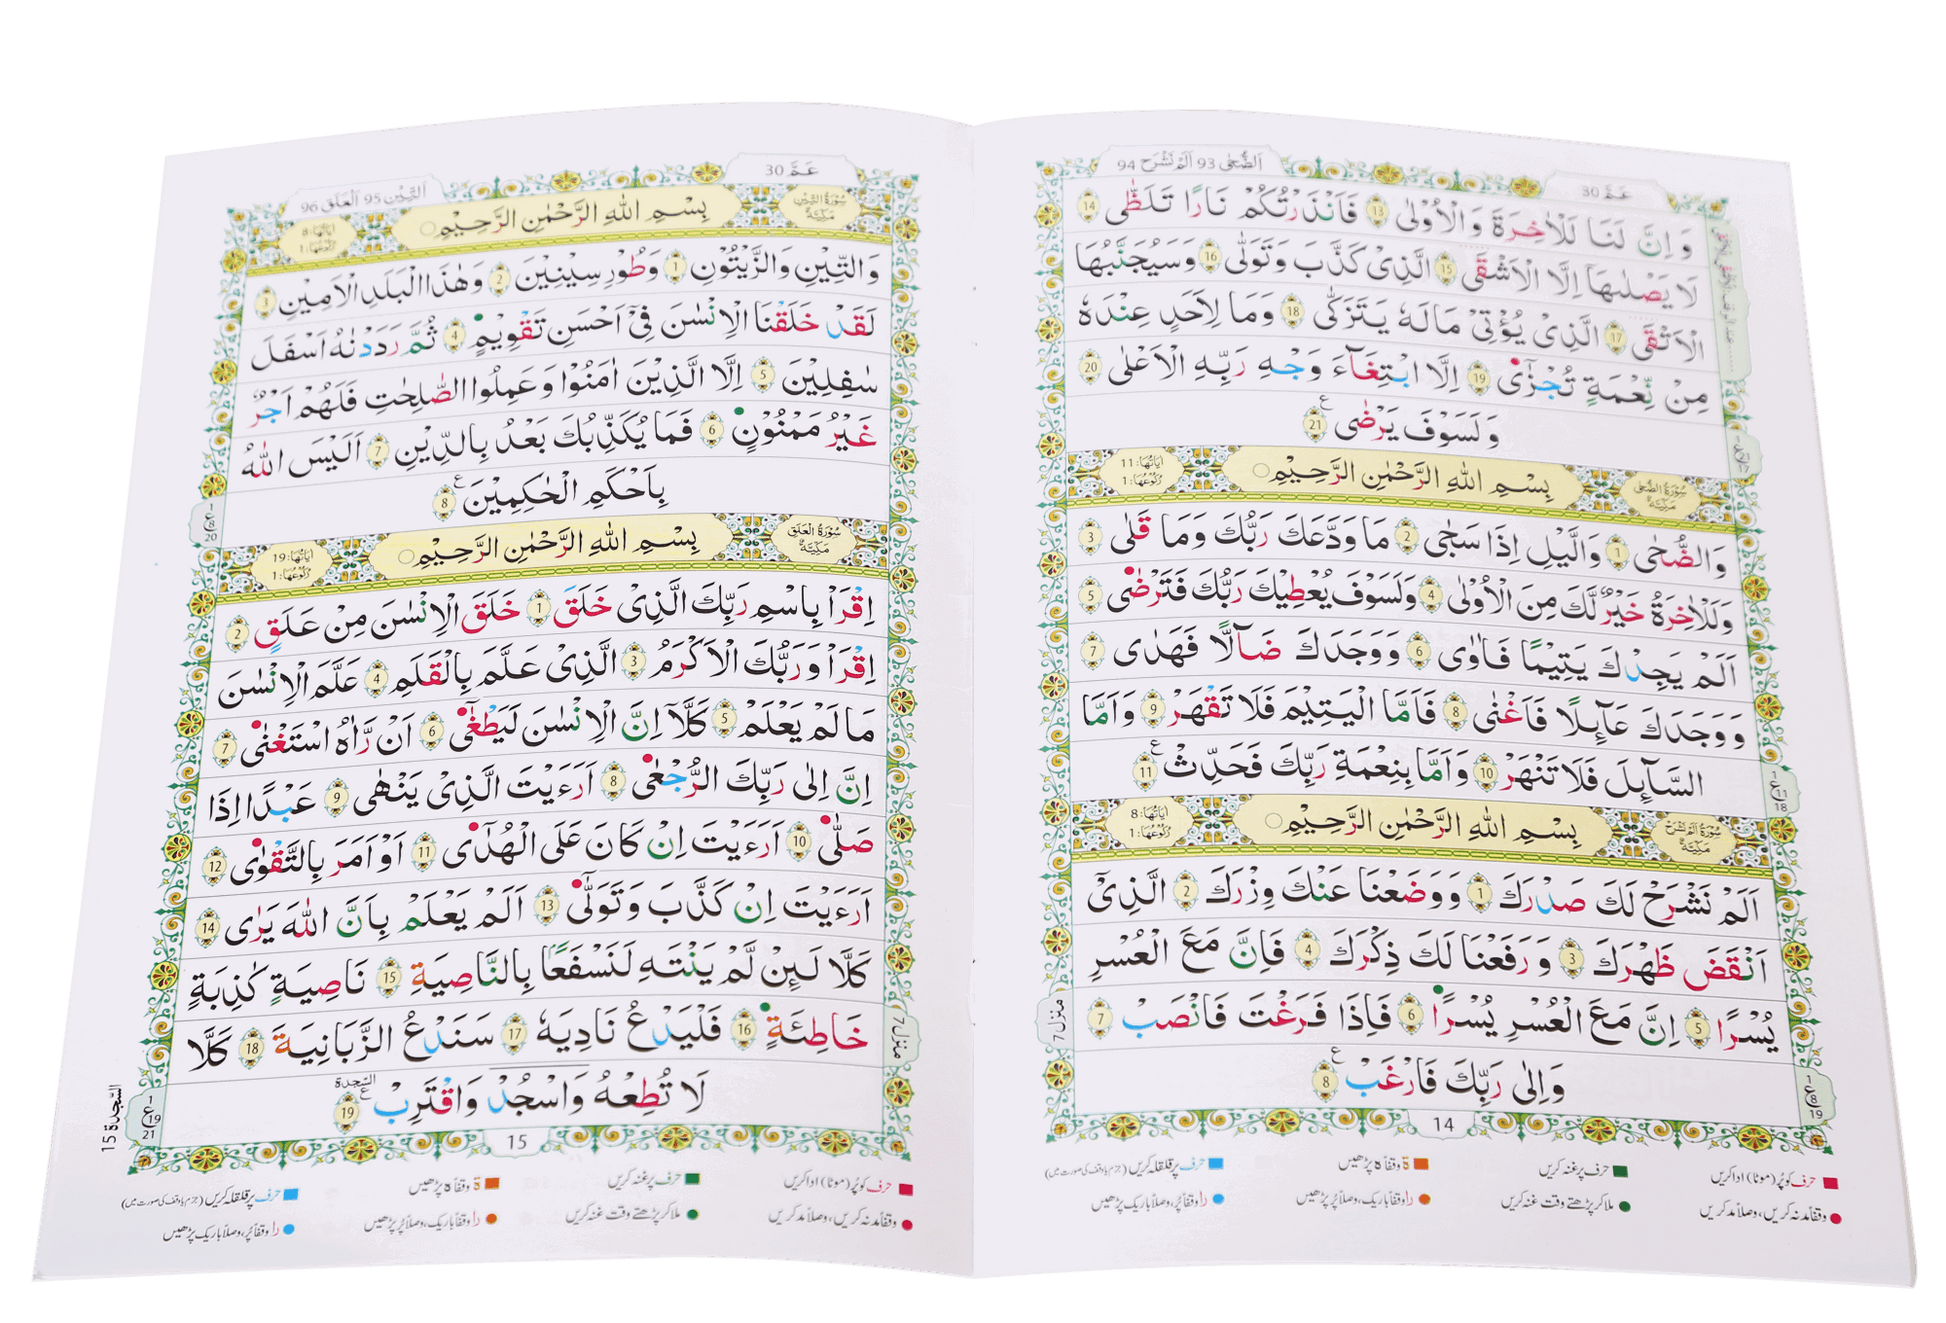 الضُّحٰى 93 اَلَمْ نَشْرَحْ 94
عَـمَّ 30
وَ اِنَّ لَنَا لَلْاٰخِرَةَ وَالْاُوْلٰى 13 فَاَنْذَرْتُكُمْ نَارًا تَلَظّٰى 14
لَا يَصْلٰىهَاۤ اِلَّا الْاَشْقَى 15 الَّذِىْ كَذَّبَ وَتَوَلّٰى 16 وَسَيُجَنَّبُهَا
الْاَتْقَى 17 الَّذِىْ يُؤْتِىْ مَالَهٗ يَتَزَكّٰى 18 وَمَا لِاَحَدٍ عِنْدَهٗ
مِنْ نِّعْمَةٍ تُجْزٰٓى 19 اِلَّا ابْتِغَآءَ وَجْهِ رَبِّهِ الْاَعْلٰى 20
وَلَسَوْفَ يَرْضٰى 21
سُوْرَةُ الضُّحٰى مَكِّيَّةٌ
بِسْمِ اللهِ الرَّحْمٰنِ الرَّحِيْمِ
اٰيَاتُهَا: 11 رُكُوْعُهَا: 1
وَالضُّحٰى 1 وَالَّيْلِ اِذَا سَجٰى 2 مَا وَدَّعَكَ رَبُّكَ وَمَا قَلٰى 3
وَلَلْاٰخِرَةُ خَيْرٌ لَّكَ مِنَ الْاُوْلٰى 4 وَلَسَوْفَ يُعْطِيْكَ رَبُّكَ فَتَرْضٰى 5
اَلَمْ يَجِدْكَ يَتِيْمًا فَاٰوٰى 6 وَوَجَدَكَ ضَآلًّا فَهَدٰى 7
وَوَجَدَكَ عَآئِلًا فَاَغْنٰى 8 فَاَمَّا الْيَتِيْمَ فَلَا تَقْهَرْ 9 وَاَمَّا
السَّآئِلَ فَلَا تَنْهَرْ 10 وَاَمَّا بِنِعْمَةِ رَبِّكَ فَحَدِّثْ 11
سُوْرَةُ اَلَمْ نَشْرَحْ مَكِّيَّةٌ
بِسْمِ اللهِ الرَّحْمٰنِ الرَّحِيْمِ
اٰيَاتُهَا: 8 رُكُوْعُهَا: 1
اَلَمْ نَشْرَحْ لَكَ صَدْرَكَ 1 وَوَضَعْنَا عَنْكَ وِزْرَكَ 2 الَّذِىْٓ
اَنْقَضَ ظَهْرَكَ 3 وَرَفَعْنَا لَكَ ذِكْرَكَ 4 فَاِنَّ مَعَ الْعُسْرِ
يُسْرًا 5 اِنَّ مَعَ الْعُسْرِ يُسْرًا 6 فَاِذَا فَرَغْتَ فَانْصَبْ 7
وَاِلٰى رَبِّكَ فَارْغَبْ 8
منزل 7
14
حرف کو پُر (موٹا) ادا کریں
حرف پر غنہ کریں
ة وقفاً ہ پڑھیں
حرف پر قلقلہ کریں (جزم یا وقف کی صورت میں)
وقفاً مد نہ کریں، وصلاً مد کریں
ملا کر پڑھتے وقت غنہ کریں
را وقفاً باریک، وصلاً پُر پڑھیں
را وقفاً پُر، وصلاً باریک پڑھیں
اَلتِّيْن 95 اَلْعَلَق 96
عَـمَّ 30
سُوْرَةُ التِّيْنِ مَكِّيَّةٌ
بِسْمِ اللهِ الرَّحْمٰنِ الرَّحِيْمِ
اٰيَاتُهَا: 8 رُكُوْعُهَا: 1
وَالتِّيْنِ وَالزَّيْتُوْنِ 1 وَطُوْرِ سِيْنِيْنَ 2 وَهٰذَا الْبَلَدِ الْاَمِيْنِ 3
لَقَدْ خَلَقْنَا الْاِنْسٰنَ فِىْٓ اَحْسَنِ تَقْوِيْمٍ 4 ثُمَّ رَدَدْنٰهُ اَسْفَلَ
سٰفِلِيْنَ 5 اِلَّا الَّذِيْنَ اٰمَنُوْا وَعَمِلُوا الصّٰلِحٰتِ فَلَهُمْ اَجْرٌ
غَيْرُ مَمْنُوْنٍ 6 فَمَا يُكَذِّبُكَ بَعْدُ بِالدِّيْنِ 7 اَلَيْسَ اللهُ
بِاَحْكَمِ الْحٰكِمِيْنَ 8
سُوْرَةُ الْعَلَقِ مَكِّيَّةٌ
بِسْمِ اللهِ الرَّحْمٰنِ الرَّحِيْمِ
اٰيَاتُهَا: 19 رُكُوْعُهَا: 1
اِقْرَاْ بِاسْمِ رَبِّكَ الَّذِىْ خَلَقَ 1 خَلَقَ الْاِنْسٰنَ مِنْ عَلَقٍ 2
اِقْرَاْ وَرَبُّكَ الْاَكْرَمُ 3 الَّذِىْ عَلَّمَ بِالْقَلَمِ 4 عَلَّمَ الْاِنْسٰنَ
مَا لَمْ يَعْلَمْ 5 كَلَّاۤ اِنَّ الْاِنْسٰنَ لَيَطْغٰٓى 6 اَنْ رَّاٰهُ اسْتَغْنٰى 7
اِنَّ اِلٰى رَبِّكَ الرُّجْعٰى 8 اَرَءَيْتَ الَّذِىْ يَنْهٰى 9 عَبْدًا اِذَا
صَلّٰى 10 اَرَءَيْتَ اِنْ كَانَ عَلَى الْهُدٰٓى 11 اَوْ اَمَرَ بِالتَّقْوٰى 12
اَرَءَيْتَ اِنْ كَذَّبَ وَتَوَلّٰى 13 اَلَمْ يَعْلَمْ بِاَنَّ اللهَ يَرٰى 14
كَلَّا لَئِنْ لَّمْ يَنْتَهِ لَنَسْفَعًا بِالنَّاصِيَةِ 15 نَاصِيَةٍ كٰذِبَةٍ
خَاطِئَةٍ 16 فَلْيَدْعُ نَادِيَهٗ 17 سَنَدْعُ الزَّبَانِيَةَ 18 كَلَّا
لَا تُطِعْهُ وَاسْجُدْ وَاقْتَرِبْ السجدة 19
منزل 7
السَّجدة 15
15
حرف کو پُر (موٹا) ادا کریں
حرف پر غنہ کریں
ة وقفاً ہ پڑھیں
حرف پر قلقلہ کریں (جزم یا وقف کی صورت میں)
وقفاً مد نہ کریں، وصلاً مد کریں
ملا کر پڑھتے وقت غنہ کریں
را وقفاً باریک، وصلاً پُر پڑھیں
را وقفاً پُر، وصلاً باریک پڑھیں